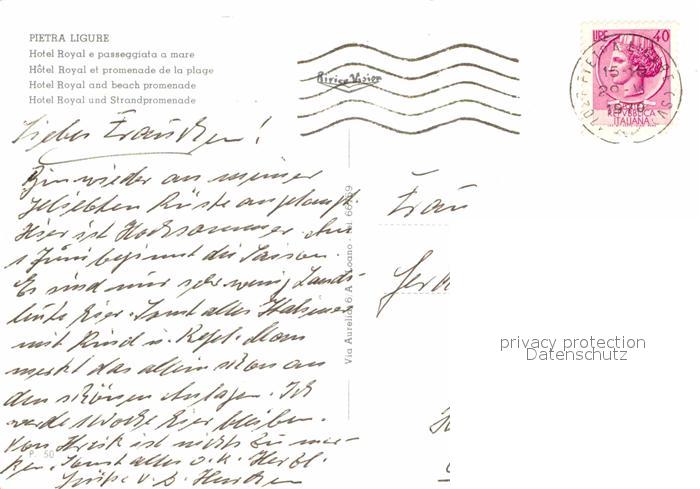 PIETRA LIGURE
Hotel Royal e passeggiata a mare
Hôtel Royal et promenade de la plage
Hotel Royal and beach promenade
Hotel Royal und Strandpromenade
Riviera Visior
LIRE 40
REPVBBLICA
ITALIANA
15-16
1970
Liebes Frauchen!
Bin wieder an meiner
geliebten Küste angelangt.
Hier ist Hochsommer. Am
1 Juni beginnt die Saison.
Es sind nur sehr wenig Lands-
leute hier. Sonst alles Italiener
mit Kind u. Kegel. Man
merkt das allein schon an
den schönen Anlagen. Ich
werde Woche hier bleiben.
Von Streik ist nichts zu mer-
ken. Sonst alles o.k. Herzl.
Grüße v. D.
P. 50
Via Aurelia, 6 A Loano - Tel.
Frau
Ger
privacy protection
Datenschutz